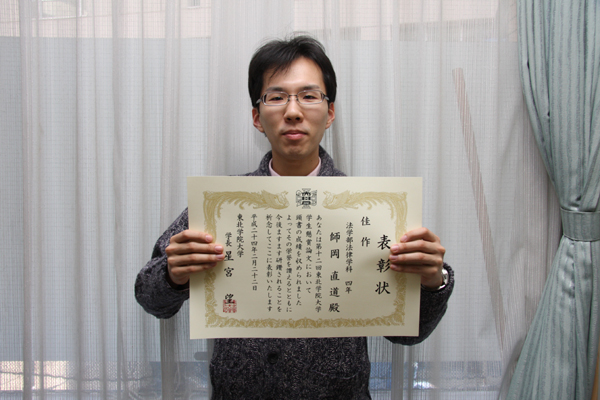 表彰状
佳作
法学部法律学科 四年
師岡 直道 殿
あなたは第十二回東北学院大学
学生懸賞論文において
頭書の成績を収められました
よってその学業を讃えるとともに
今後ますます研鑽されることを
祈念してここに表彰いたします
平成二十四年二月二十二日
東北学院大学
学長 星宮 望